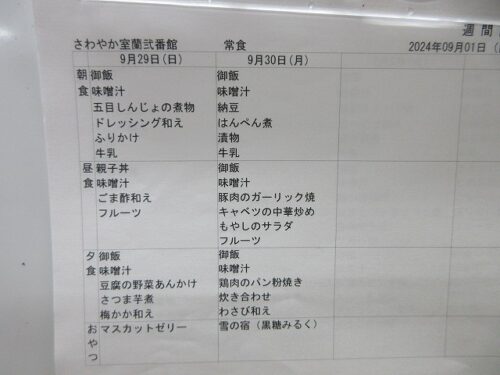 週間
さわやか室蘭弐番館 常食 2024年09月01日
9月29日(日) 9月30日(月)
朝 御飯 御飯
食 味噌汁 味噌汁
五目しんじょの煮物 納豆
ドレッシング和え はんぺん煮
ふりかけ 漬物
牛乳 牛乳
昼 親子丼 御飯
食 味噌汁 味噌汁
ごま酢和え 豚肉のガーリック焼
フルーツ キャベツの中華炒め
もやしのサラダ
フルーツ
夕 御飯 御飯
食 味噌汁 味噌汁
豆腐の野菜あんかけ 鶏肉のパン粉焼き
さつま芋煮 炊き合わせ
梅かか和え わさび和え
お マスカットゼリー 雪の宿（黒糖みるく）
や
つ